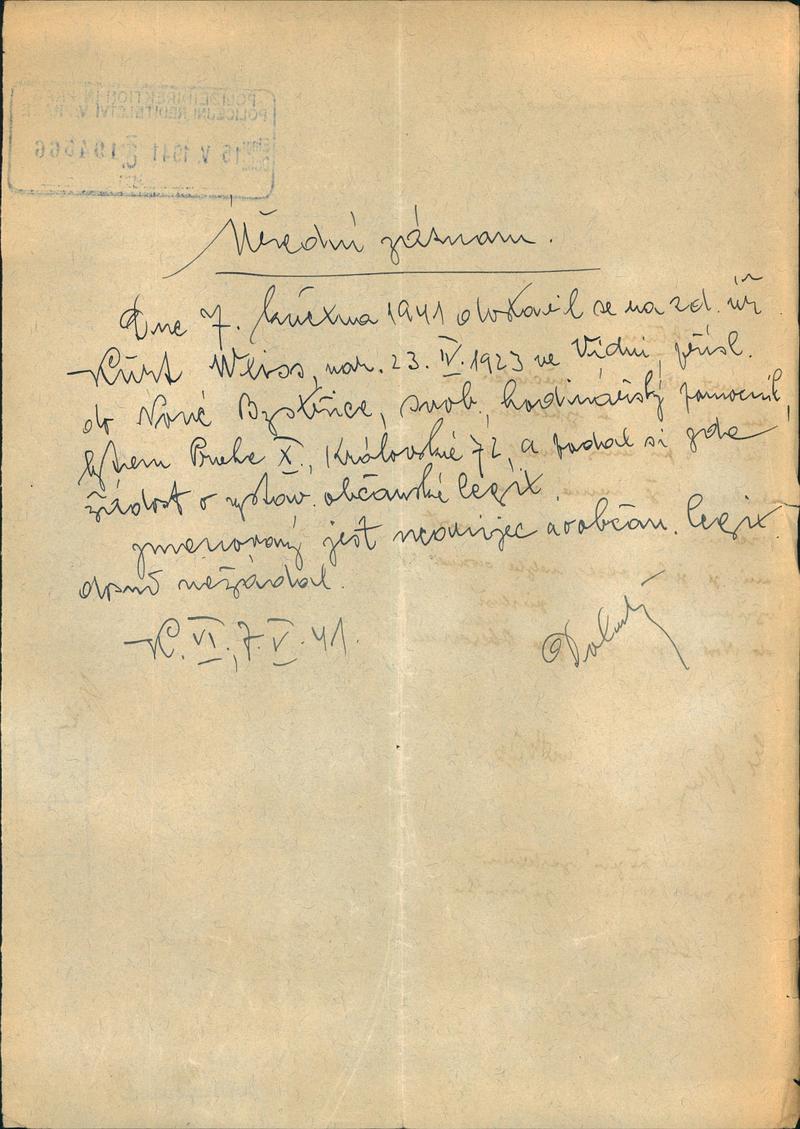 POLIZEIDIREKTION IN PRAG
POLICEJNÍ ŘEDITELSTVÍ V PRAZE
15 V. 1941 194566
Úřední záznam.
Dne 7. května 1941 dostavil se na zd. úř.
Kurt Weiss, nar. 23. IV. 1923 ve Vídni, přísl.
do Nové Bystřice, svob., hodinářský pomocník,
bytem Praha X., Královská 72, a podal si zde
žádost o vystav. občanské legit.
Jmenovaný jest neárijec a o občan. legit.
dosud nežádal.
K. VI., 7. V. 41.